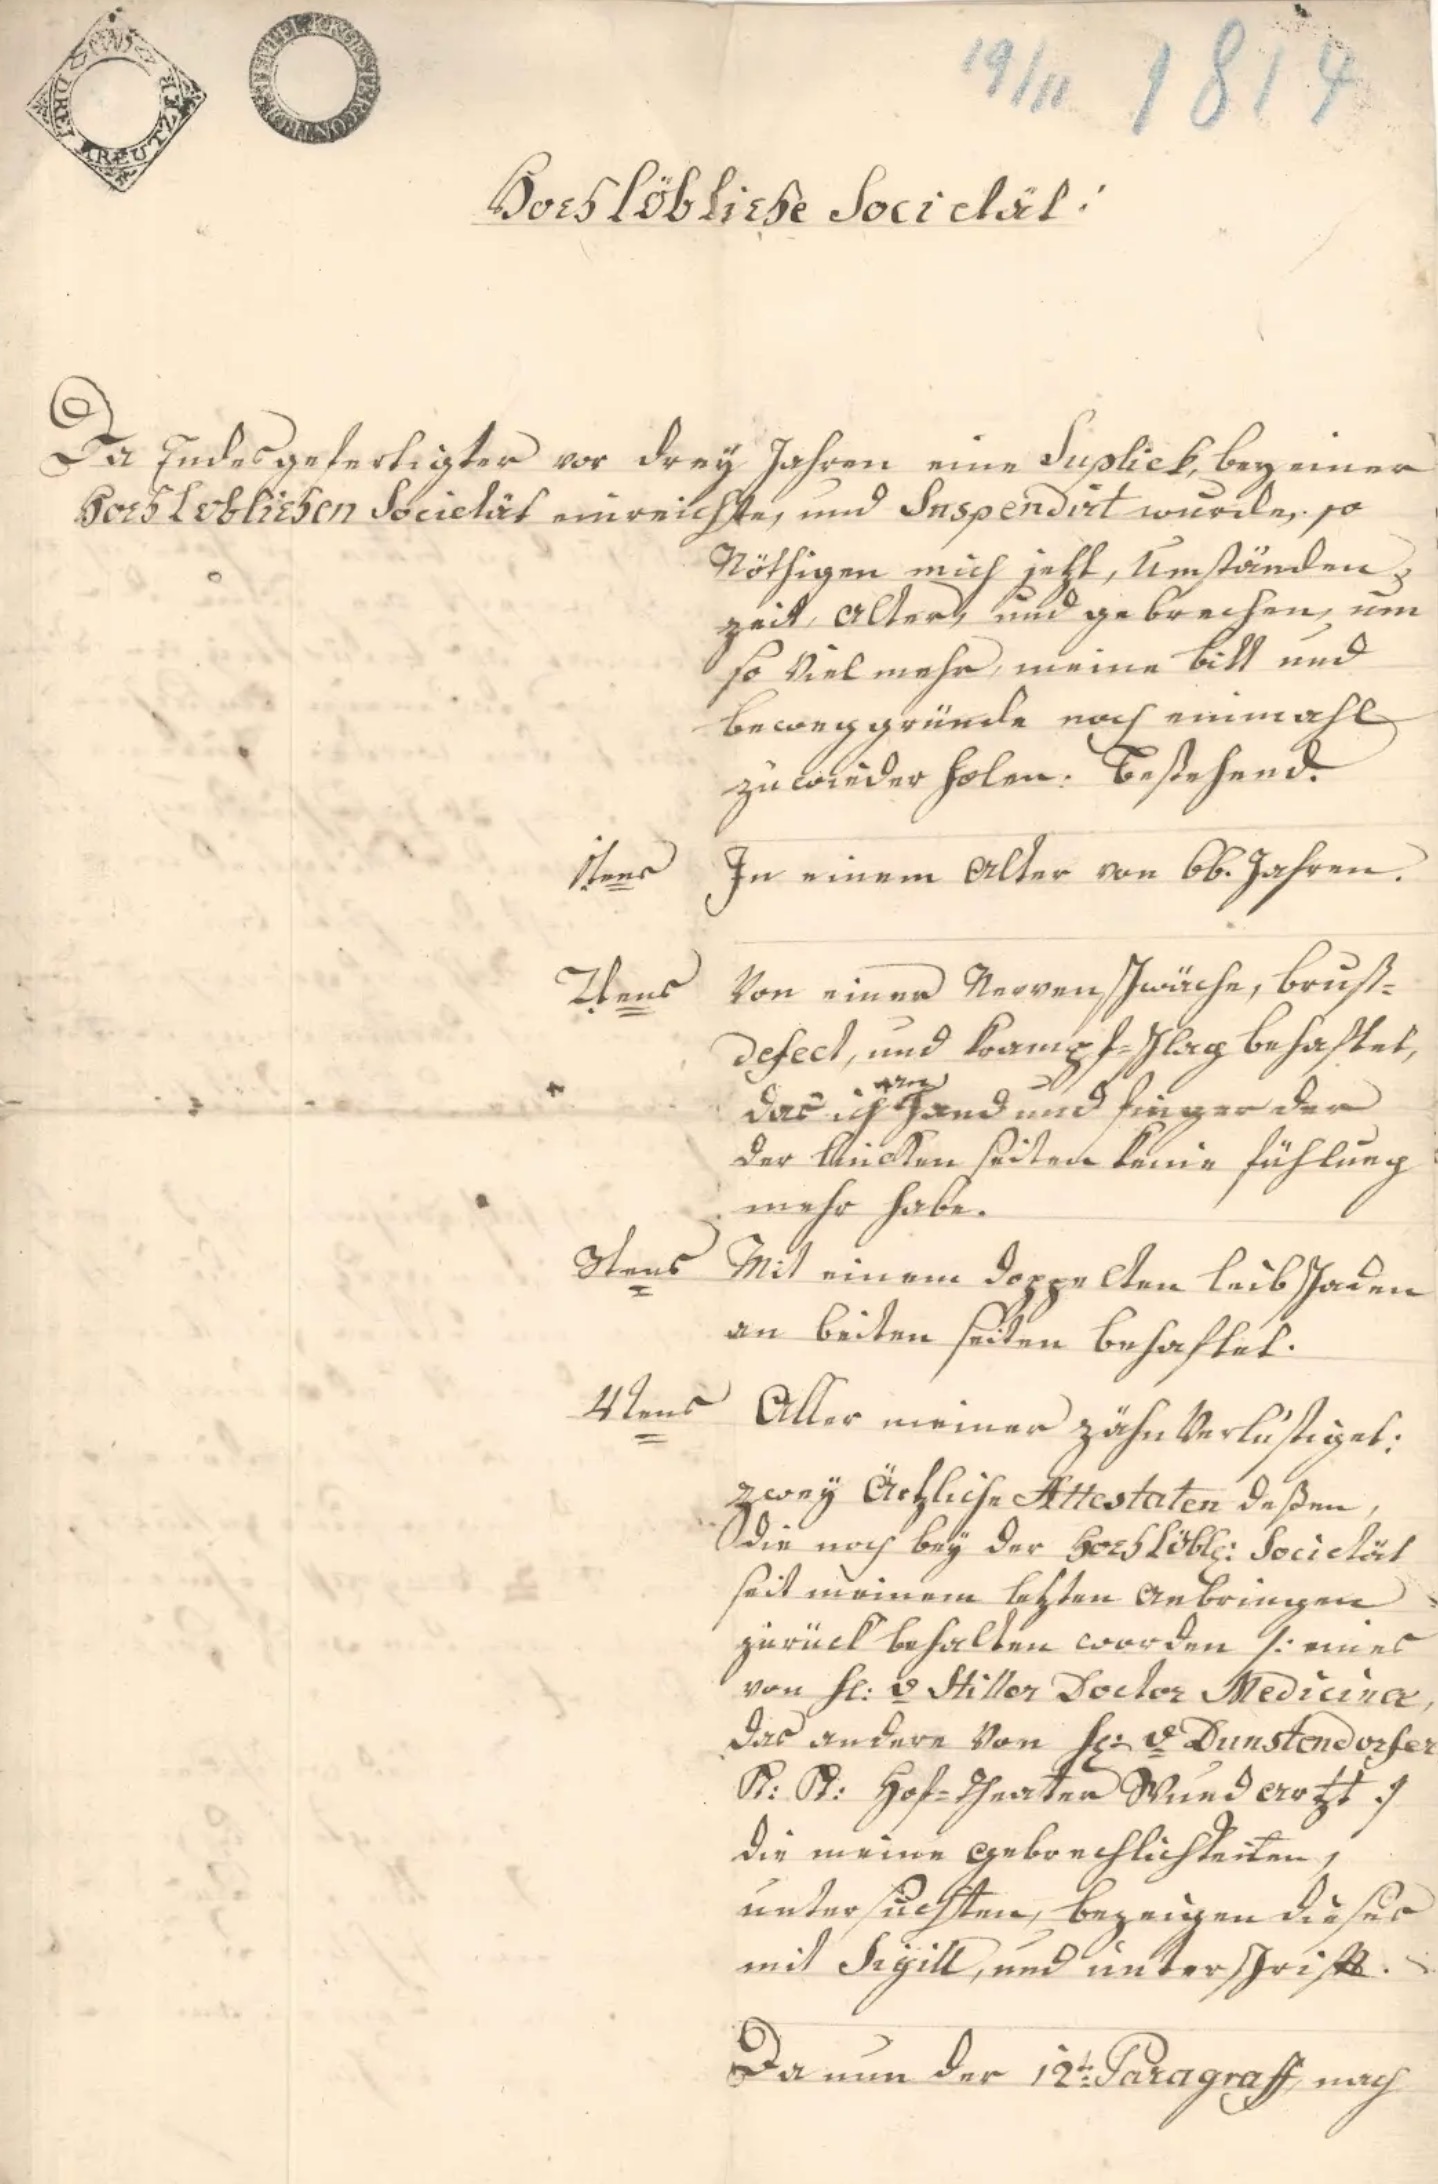 DREI KREUTZER
19/11 1814
Hochlöbliche Societät!
Da Endesgefertigter vor dreÿ Jahren eine Suplick, bey einer
Hochloblichen Societät einreichte, und Suspendirt wurde, so
Nöthigen mich jetzt, Umständen,
zeit, Alter, und gebrechen, um
so Viel mehr, meine bitt und
beweggründe noch einmahl
zu wieder holen: Bestehend.
1tens In einem Alter von 66. Jahren.
2tens Von einer Nervenschwäche, brust-
defect, und krampf-schlag behaftet,
das ich an Hand und finger der
der lincken seiten keine fühlung
mehr habe.
3tens Mit einem doppelten leibschaden
an beiten seiten behaftet.
4tens Aller meiner zähn Verlustiget:
zweÿ Ärtzliche Attestaten deßen,
die noch beÿ der Hochlöbl: Societät
seit meinem letzten Anbringen
zurück behalten worden /: eines
von H: v Stiller Doctor Medicinæ,
das andere Von H: v Dunstendorfer
K: K: Hof-Theater Wund artzt :/
die meine gebrechlichkeiten,
untersuchten, bezeigen dieses
mit Sigill, und unterschrift.
Da nun der 12te Paragraff, nach